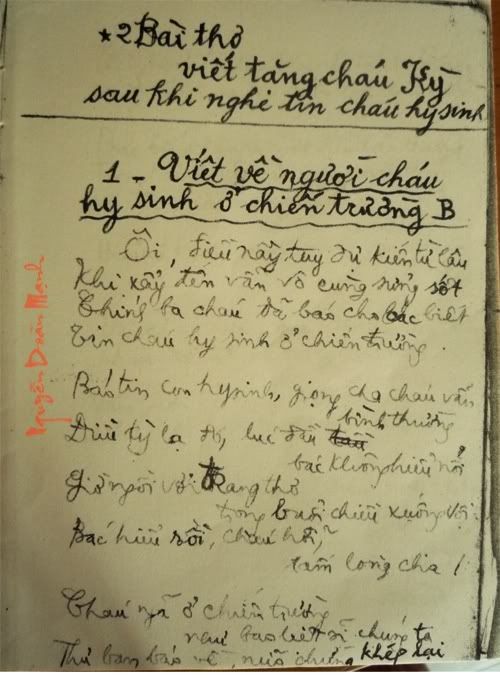 ★ 2 Bài thơ
viết tặng cháu Kỳ
sau khi nghe tin cháu hy sinh
1 - Viết về người cháu
hy sinh ở chiến trường B
Ôi, điều này tuy dự kiến từ lâu
Khi xẩy đến vẫn vô cùng sửng sốt
Chính ba cháu đã báo cho bác biết
Tin cháu hy sinh ở chiến trường.
Báo tin con hy sinh, giọng cha cháu vẫn
bình thường
Điều kỳ lạ đó, lúc đầu
bác không hiểu nổi
Giờ ngồi với trang thơ
trong buổi chiều xuống vội
Bác hiểu rồi, cháu hỡi,
tấm lòng cha !
Cháu ngã ở chiến trường
như bao liệt sĩ chúng ta
Thư ban báo về, nước chừng khép lại
Nguyễn Doãn Mạnh